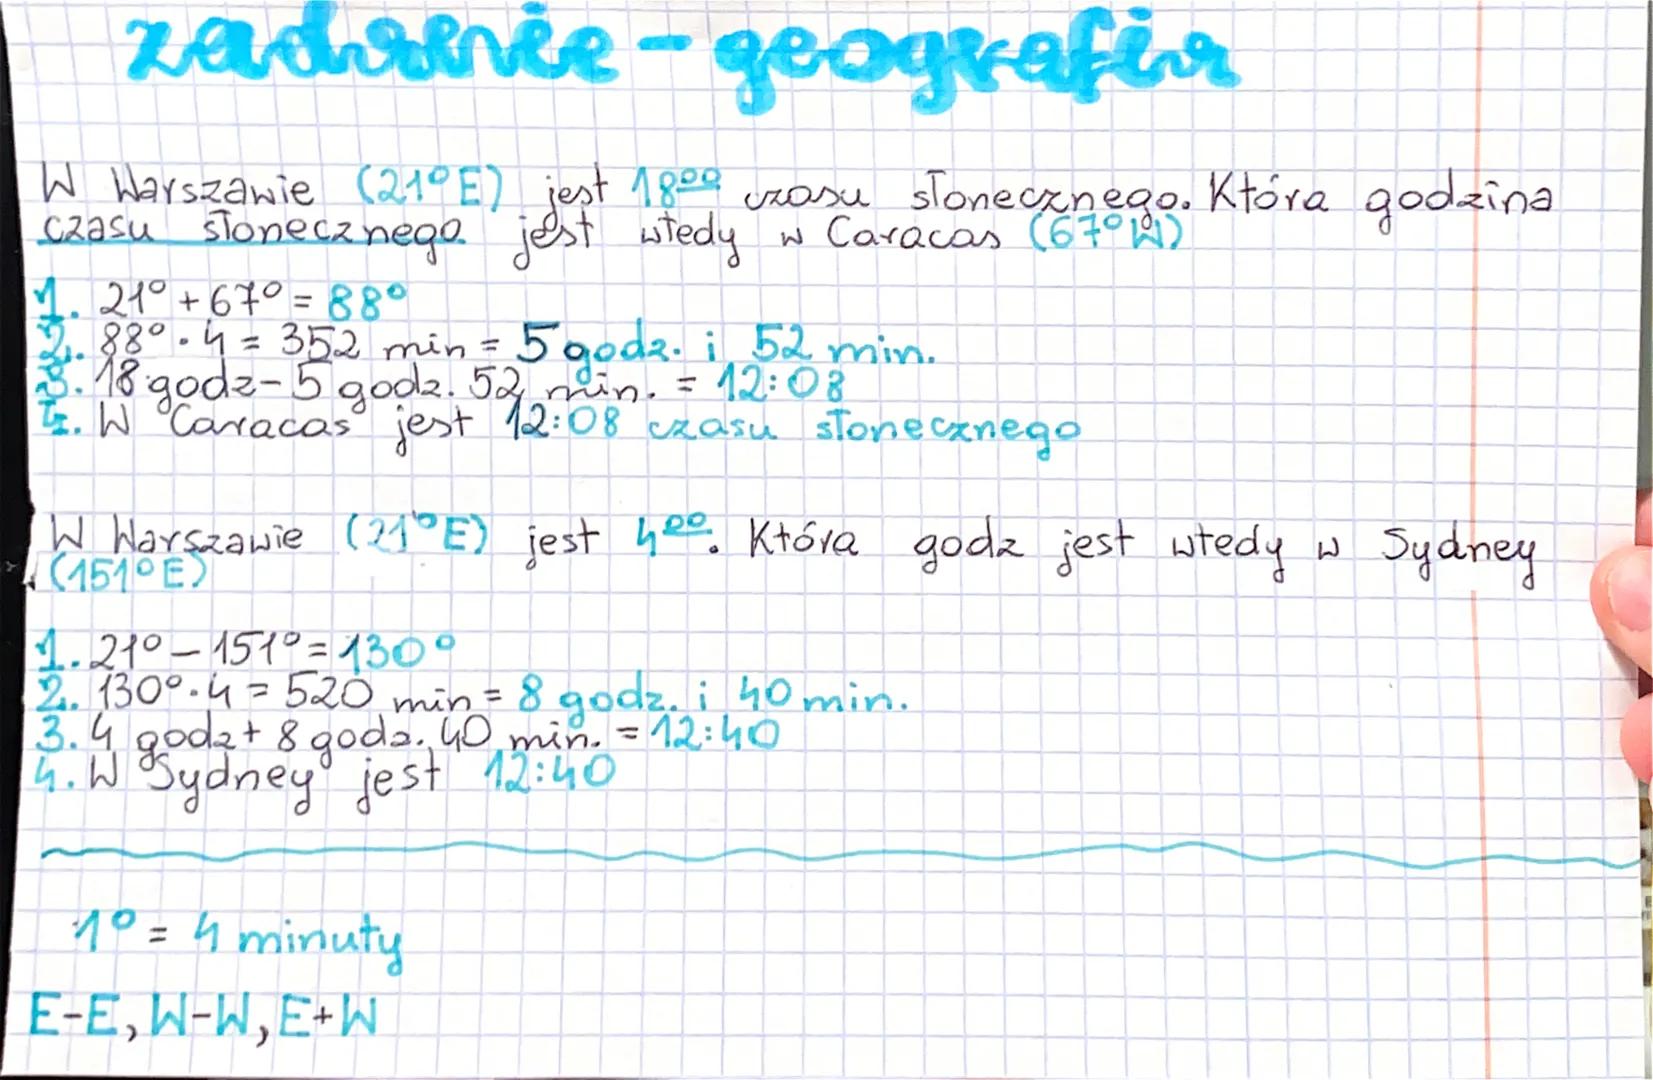 zadanie - geografia
W Warszawie (21° E) jest 18⁰⁰ czasu słonecznego. Która godzina
czasu słonecznego jest wtedy w Caracas (67° W)
1. 21° + 67° = 88°
2. 88° · 4 = 352 min = 5 godz. i 52 min.
3. 18 godz - 5 godz. 52 min. = 12:08
4. W Caracas jest 12:08 czasu słonecznego
W Warszawie (21° E) jest 4⁰⁰. Która godz jest wtedy w Sydney
(151° E)
1. 21° - 151° = 130°
2. 130° · 4 = 520 min = 8 godz. i 40 min.
3. 4 godz + 8 godz. 40 min. = 12:40
4. W Sydney jest 12:40
1° = 4 minuty
E-E, W-W, E+W